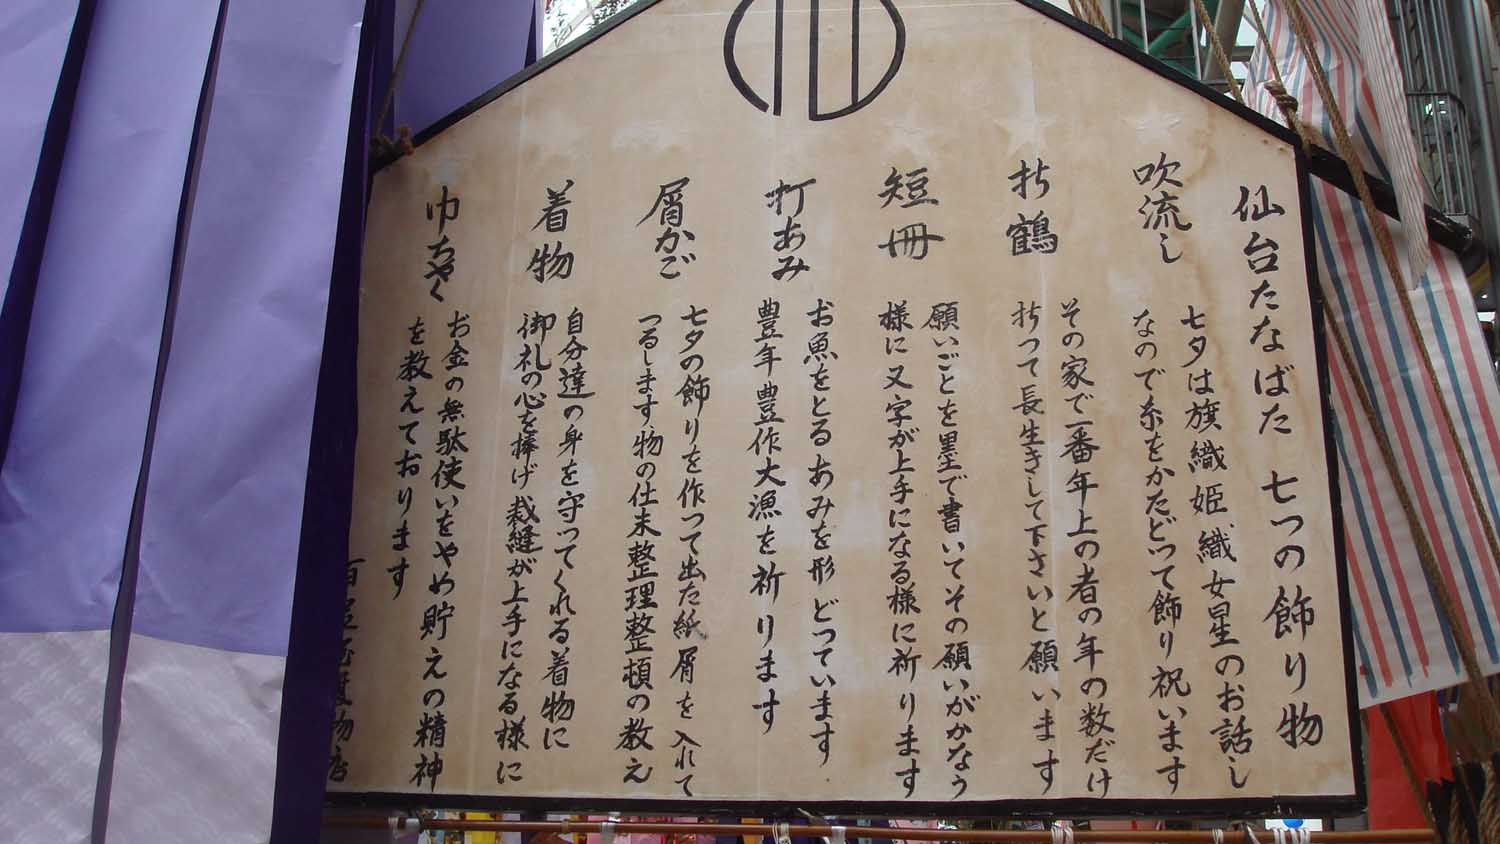 仙台たなばた 七つの飾り物
吹流し
七夕は旗織姫織女星のお話し
なので糸をかたどって飾り祝います
折鶴
その家で一番年上の者の年の数だけ
折って長生きして下さいと願います
短冊
願いごとを墨で書いてその願いがかなう
様に又字が上手になる様に祈ります
打あみ
お魚をとるあみを形どっています
豊年豊作大漁を祈ります
屑かご
七夕の飾りを作って出た紙屑を入れて
つるします物の仕末整理整頓の教え
着物
自分達の身を守ってくれる着物に
御礼の心を捧げ裁縫が上手になる様に
巾ちゃく
お金の無駄使いをやめ貯えの精神
を教えております